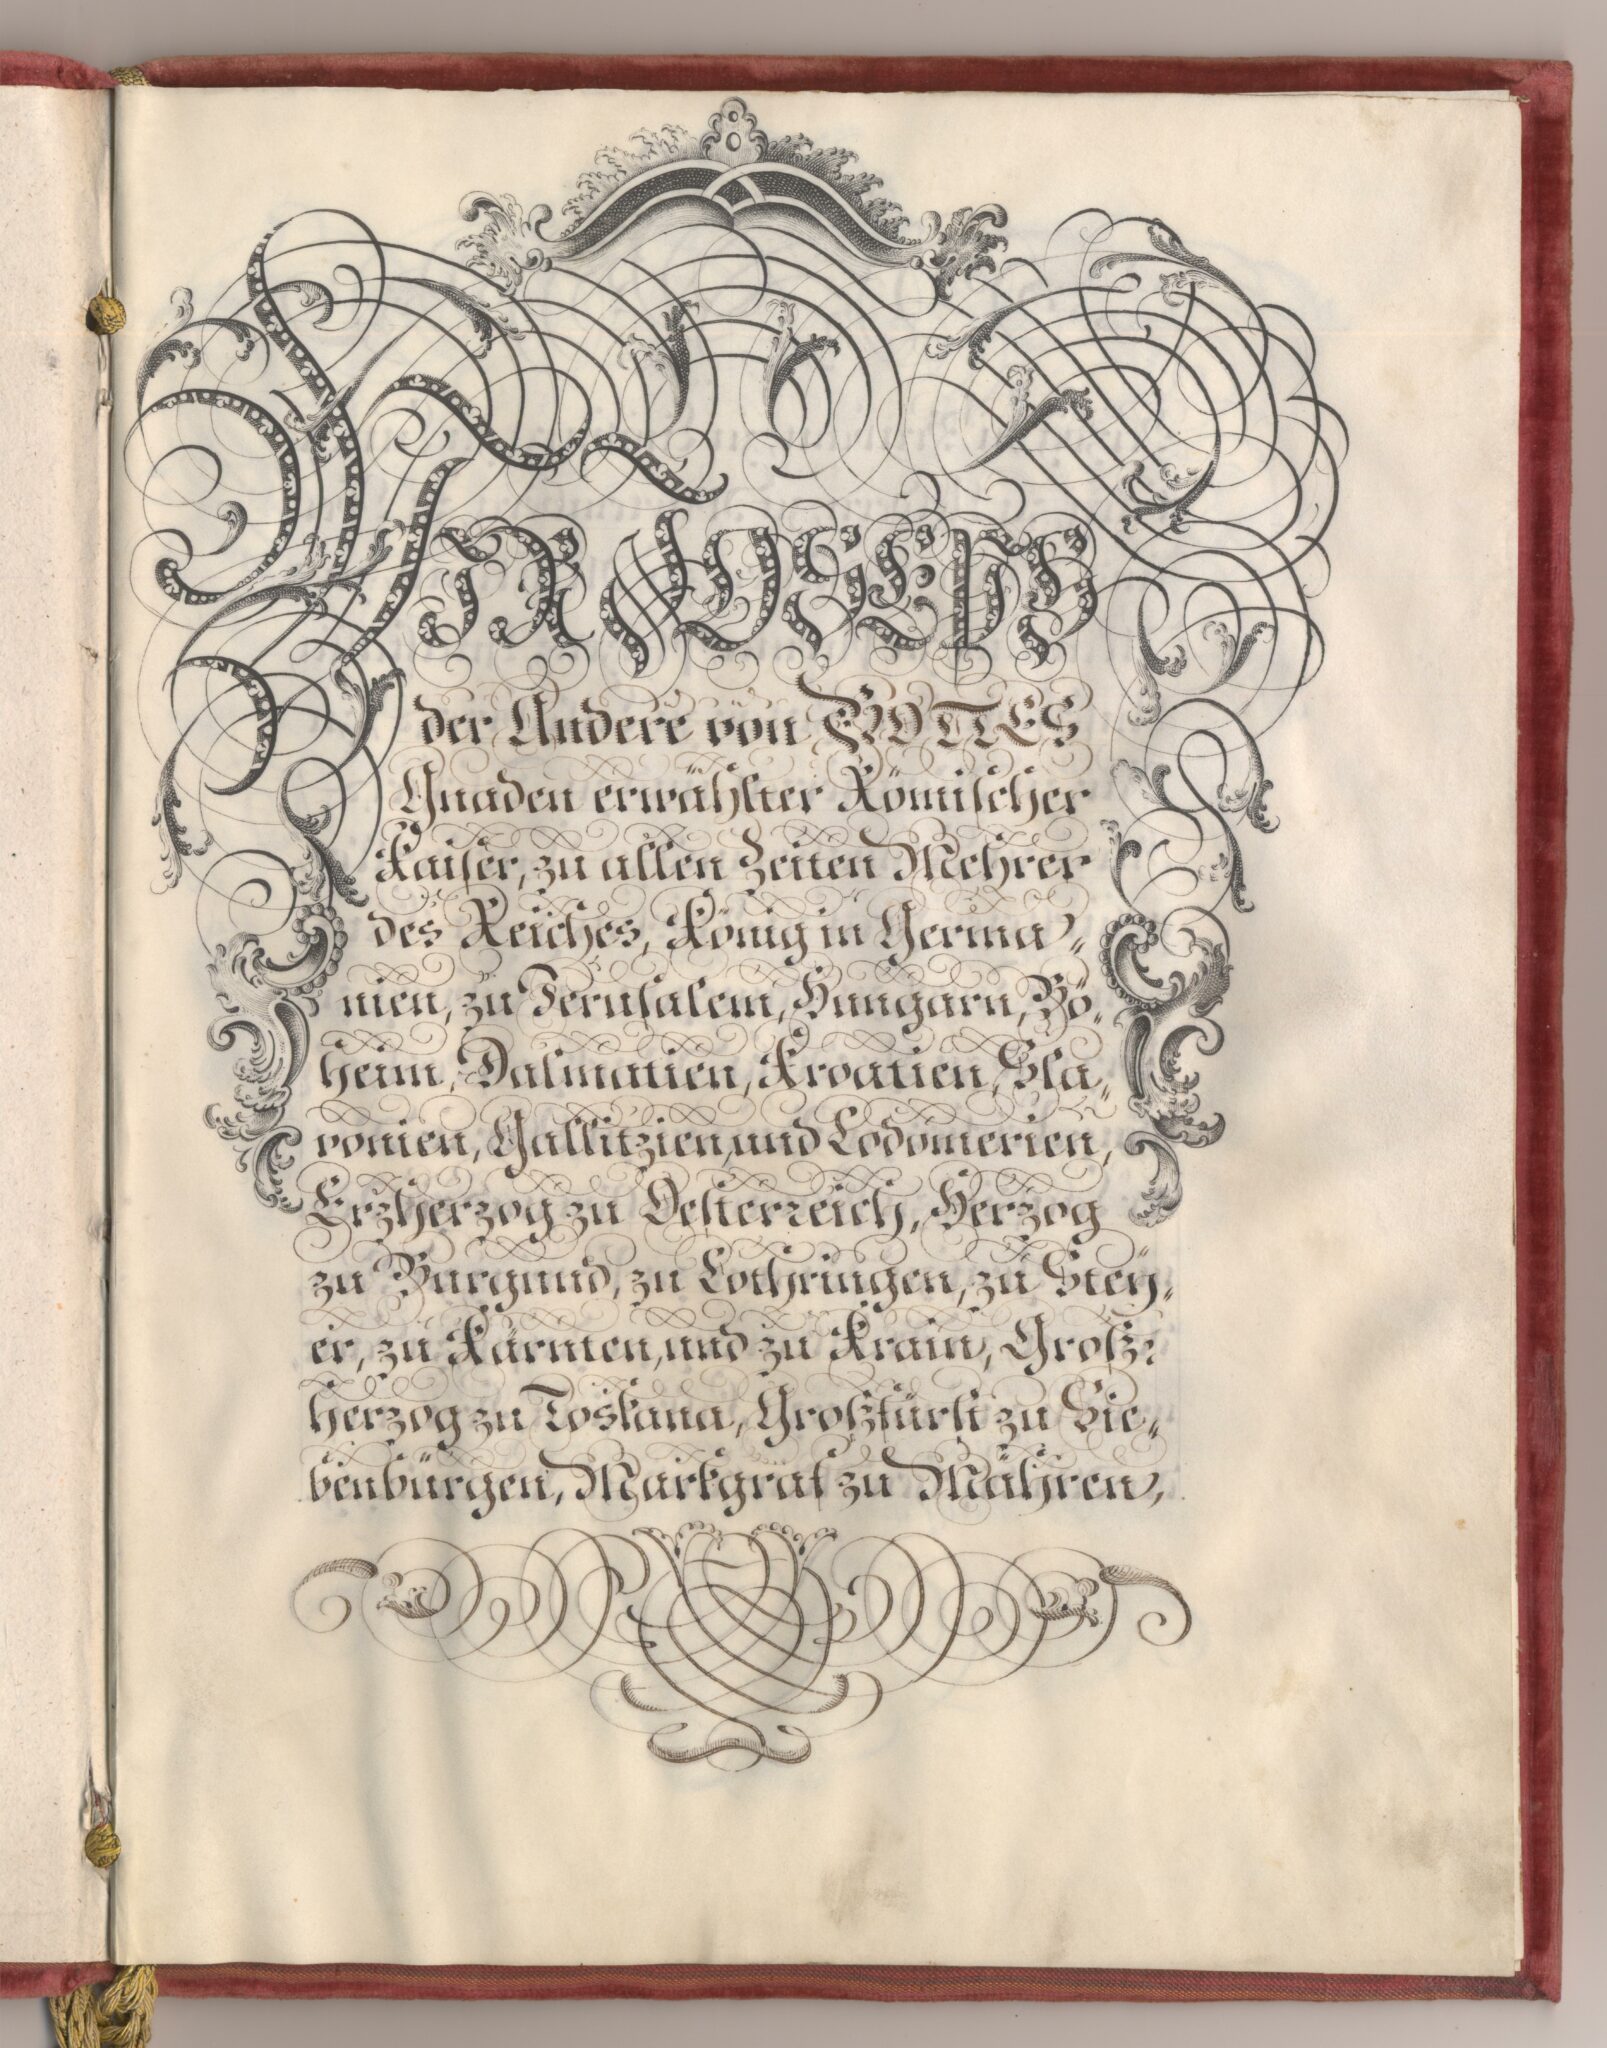 WIR JOSEPH
der Andere von GOTTES
Gnaden erwählter Römischer
Kaiser, zu allen Zeiten Mehrer
des Reiches, König in Germa„
nien, zu Jerusalem, Hungarn, Bö„
heim, Dalmatien, Kroatien, Sla„
vonien, Gallitzien, und Lodomerien,
Erzherzog zu Oesterreich, Herzog
zu Burgund, zu Lothringen, zu Stey„
er, zu Kärnten, und zu Krain, Groß„
herzog zu Toskana, Großfürst zu Sie„
benbürgen, Markgraf zu Mähren,